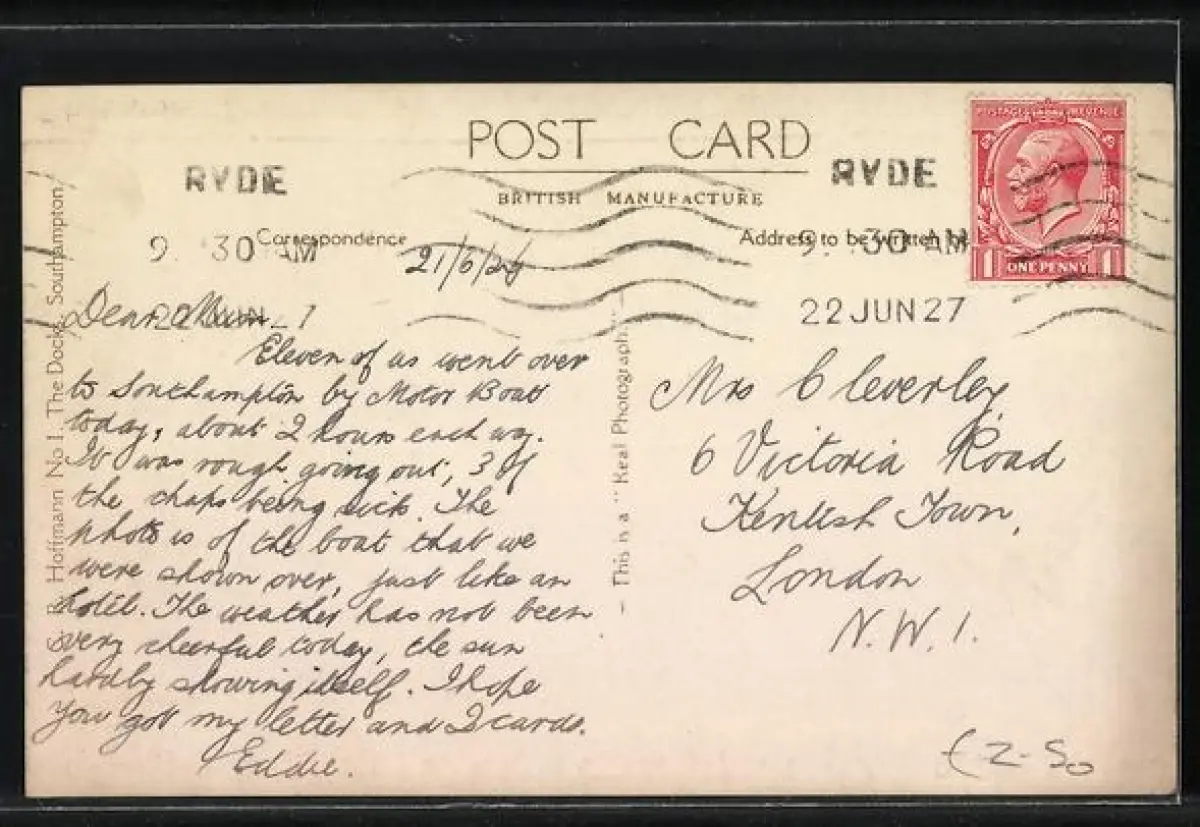 POST CARD
BRITISH MANUFACTURE
RYDE
9. 30 AM
RYDE
9. 30 AM
22 JUN 27
Correspondence
Address to be written
21/6/
POSTAGE REVENUE
1 ONE PENNY 1
Dear Mum
Eleven of us went over
to Southampton by Motor Boat
today, about 2 hours each way.
It was rough going out, 3 of
the chaps being sick. The
photo is of the boat that we
were shown over, just like an
hotel. The weather has not been
very cheerful today, the sun
hardly showing itself. I hope
you got my letter and 2 cards.
Eddie.
Mrs Cleverley,
6 Victoria Road
Kentish Town,
London
N.W.1.
Hoffmann No 1, The Docks, Southampton
- This is a "Real Photograph"
£2-50